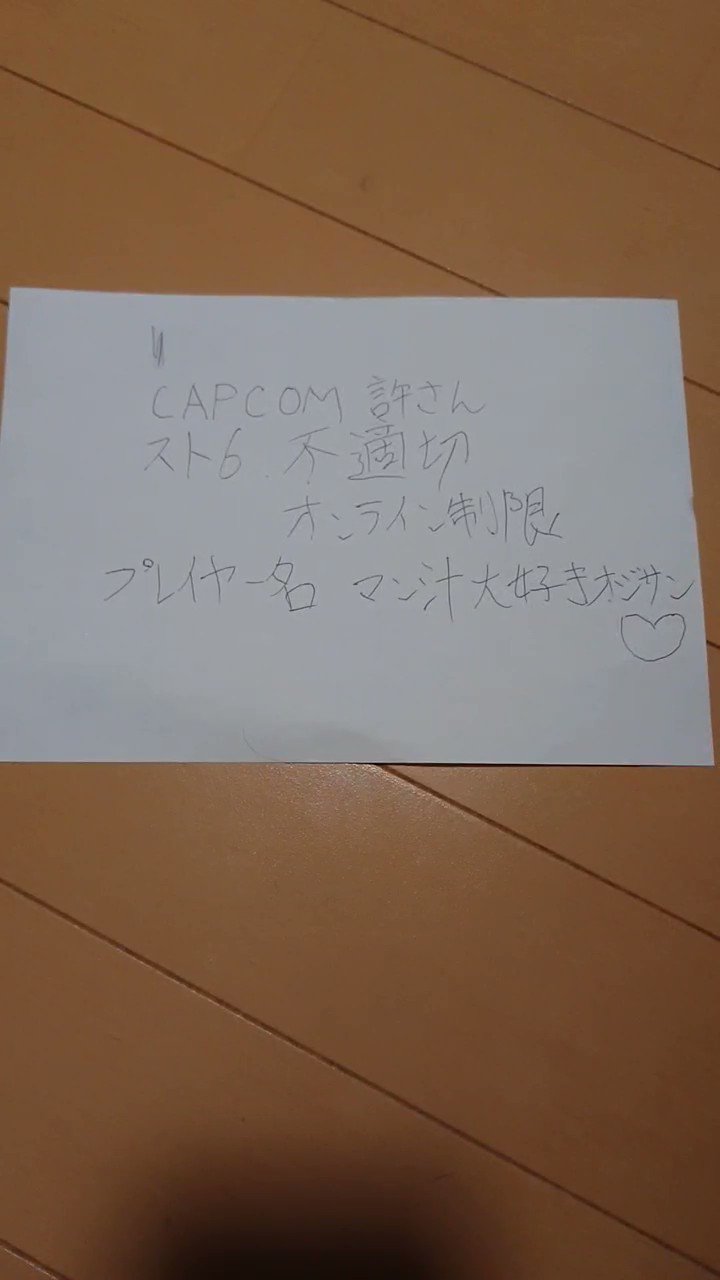 CAPCOM 許さん
スト6 不適切
オンライン制限
プレイヤー名 マン汁大好きオジサン♡